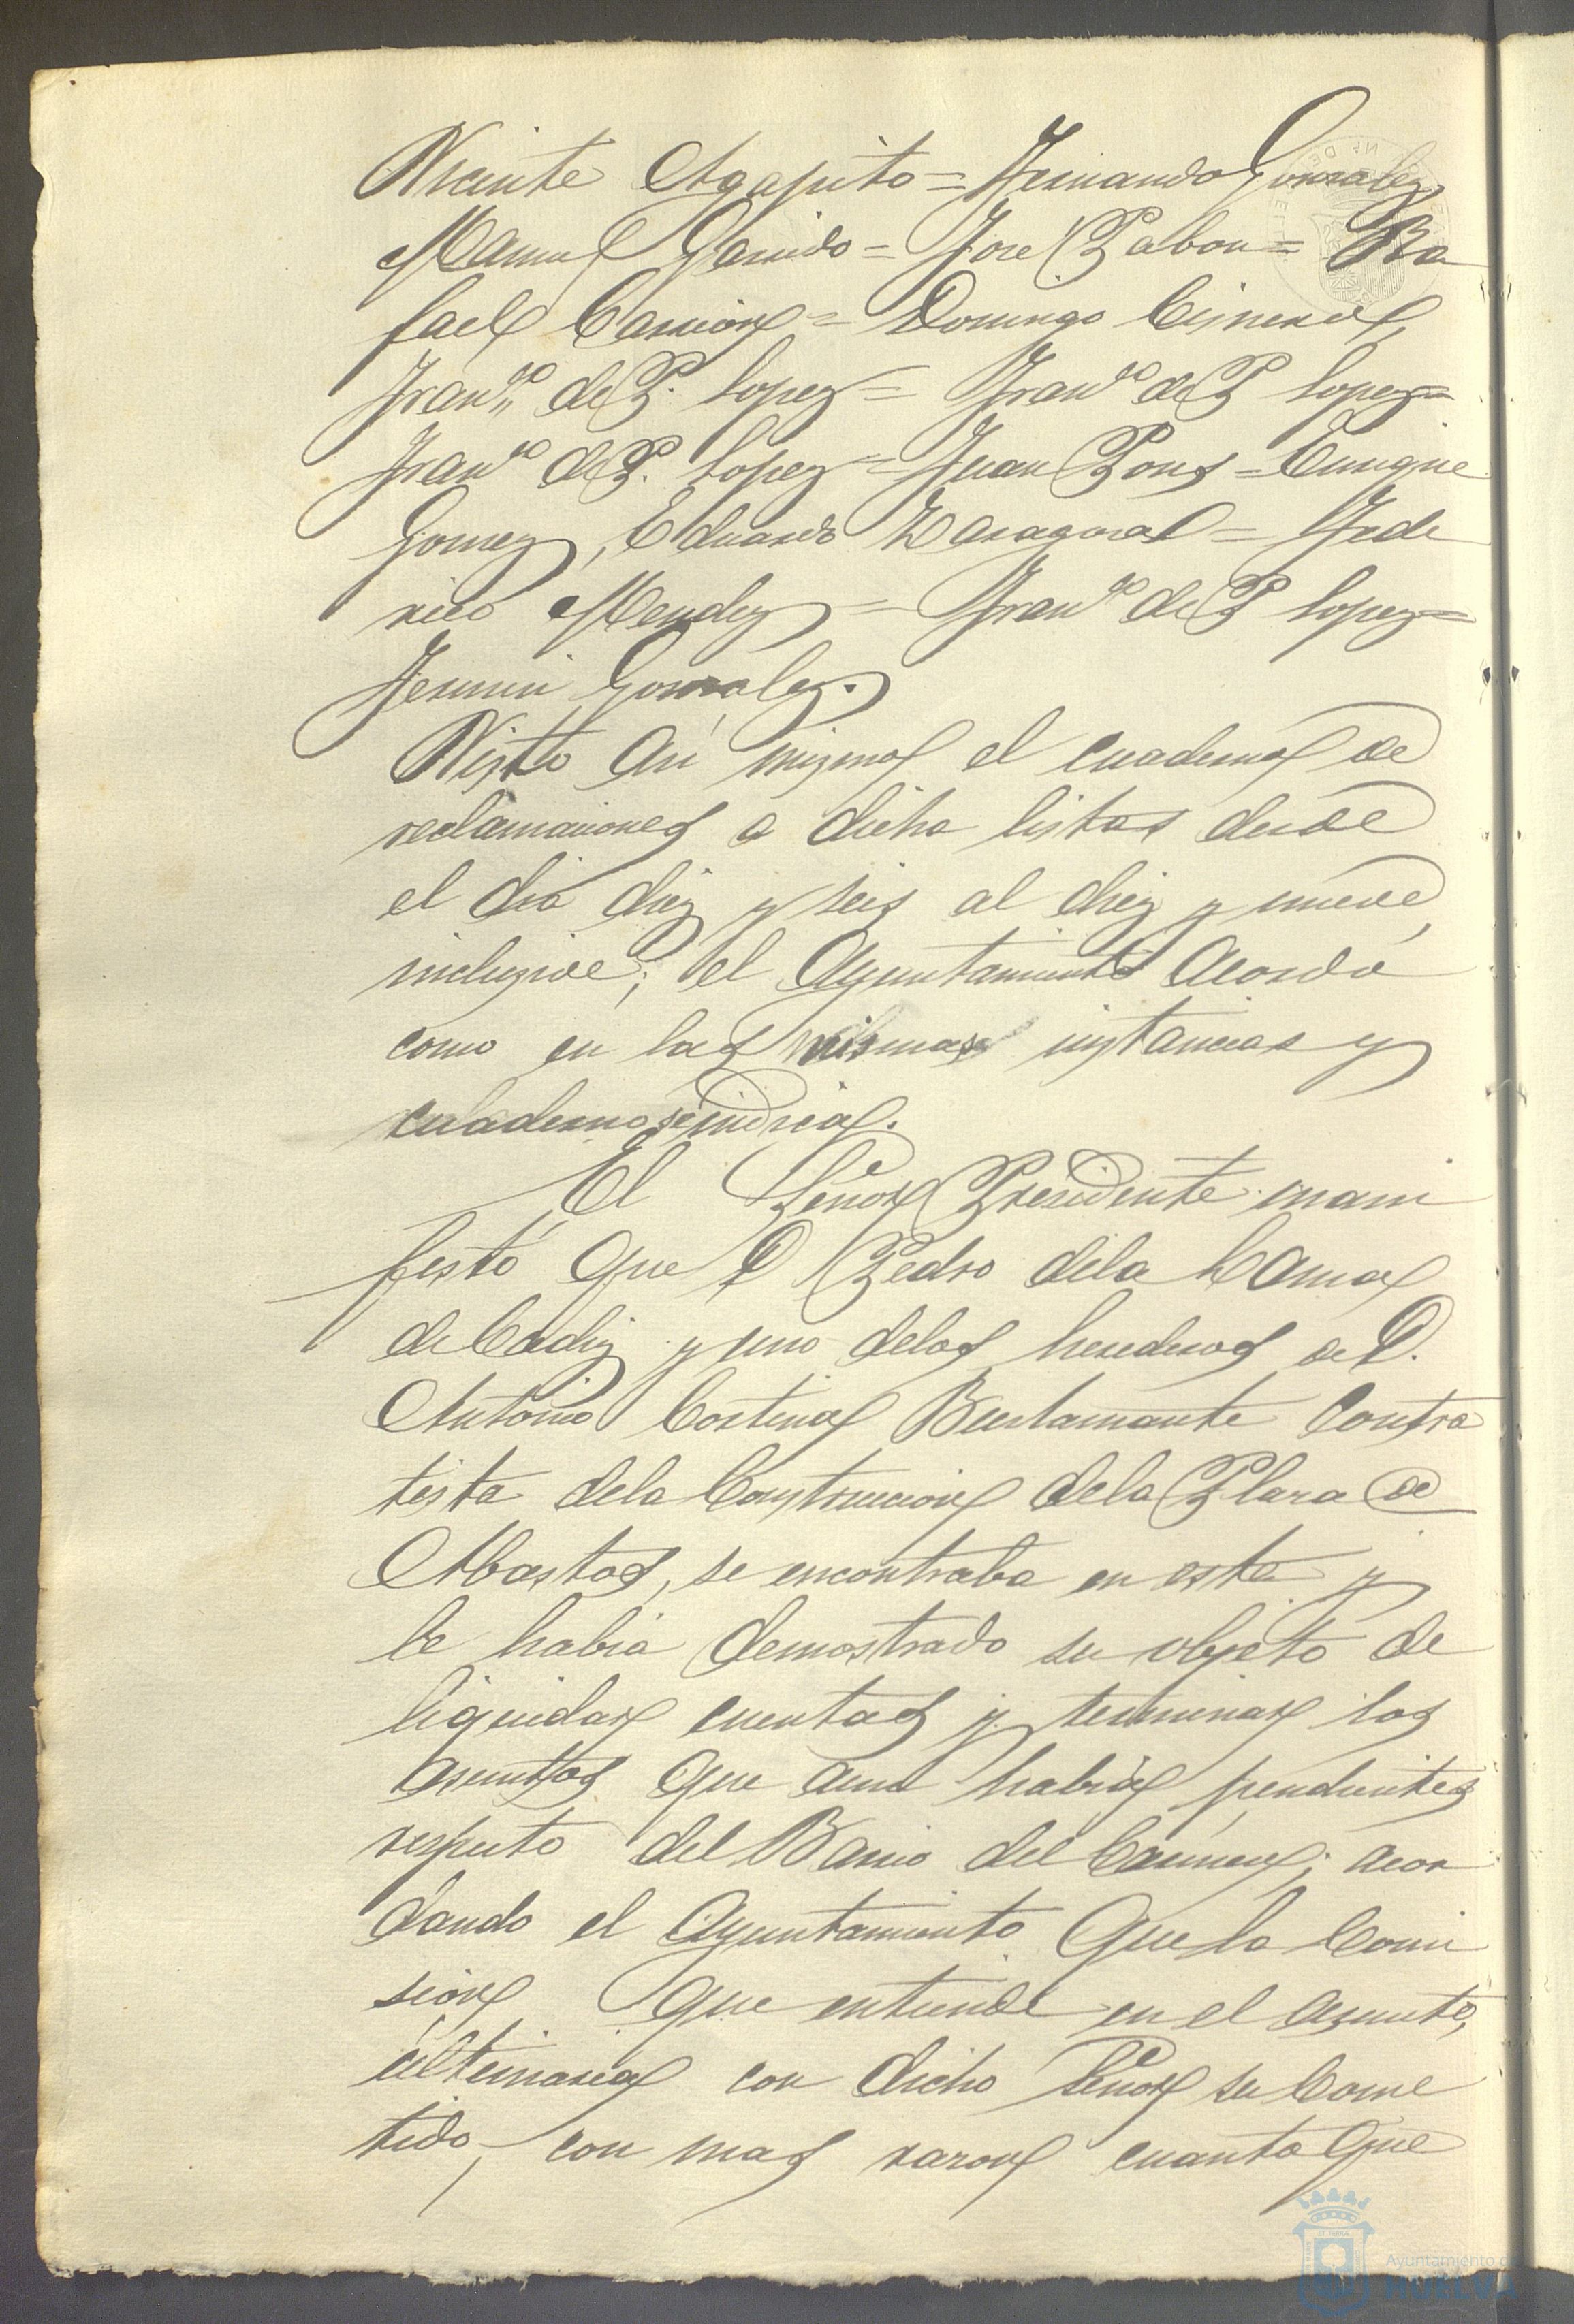 Vicente Agapito = Fernando Gonzalez,
Manuel Garrido = Jose Pabon = Ra
fael Carrion = Domingo Cisneros,
Franco de P. Lopez = Franco de P Lopez =
Franco de P. Lopez = Juan Pons = Enrique
Gomez, Eduardo Zaragoza = Fede
rico Mendez = Franco de P Lopez =
Fermin Gonzalez.
Visto asi mismo el cuaderno de
reclamaciones a dicha listas desde
el dia diez y seis al diez y nueve
inclusive; el Ayuntamiento acordó
como en las mismas instancias y
cuaderno se indica.
El Señor Presidente mani
festó que D Pedro dela Cama
de Cadiz y uno delos herederos de D.
Antonio Cortina Bustamante Contra
tista dela Construccion dela Plaza de
Abastos, se encontraba en esta y
le habia demostrado su objeto de
liquidar cuentas y terminar los
asuntos que aun habia pendientes
respecto del Barrio del Carmen; acor
dando el Ayuntamiento que la Comi
sion que entiende en el asunto,
ultimaria con dicho Señor su Come
tido, con mas razon cuanto que
Ayuntamiento de
HUELVA